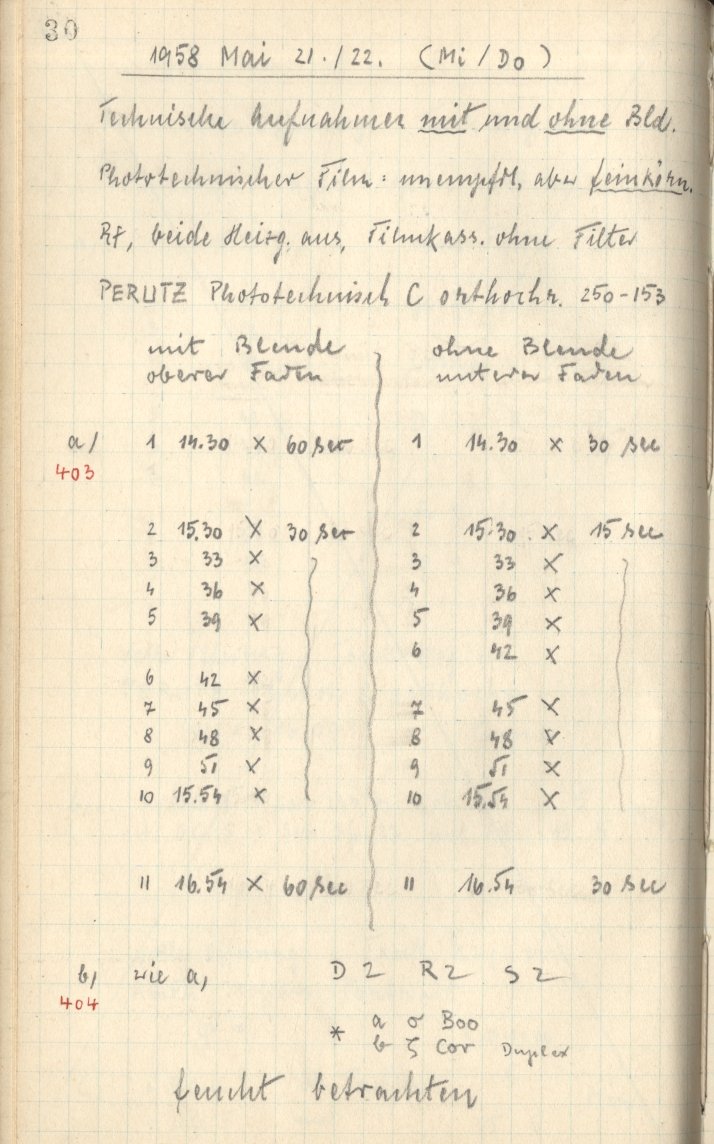 30
1958 Mai 21./22. (Mi/Do)
Technische Aufnahmen mit und ohne Bld.
Phototechnischer Film: unempfdl, aber feinkörn.
Rf, beide Heizg. aus, Filmkass. ohne Filter
PERUTZ Phototechnisch C orthochr. 250-153
mit Blende ohne Blende
oberer Faden unterer Faden
a/ 1 14.30 × 60 sec 1 14.30 × 30 sec
403
2 15.30 × 30 sec 2 15.30 × 15 sec
3 33 × 3 33 ×
4 36 × 4 36 ×
5 39 × 5 39 ×
6 42 ×
6 42 ×
7 45 × 7 45 ×
8 48 × 8 48 ×
9 51 × 9 51 ×
10 15.54 × 10 15.54 ×
11 16.54 × 60 sec 11 16.54 30 sec
b, wie a, D 2 R 2 S 2
404
* a σ Boo
b ζ Cor Duplex
feucht betrachten